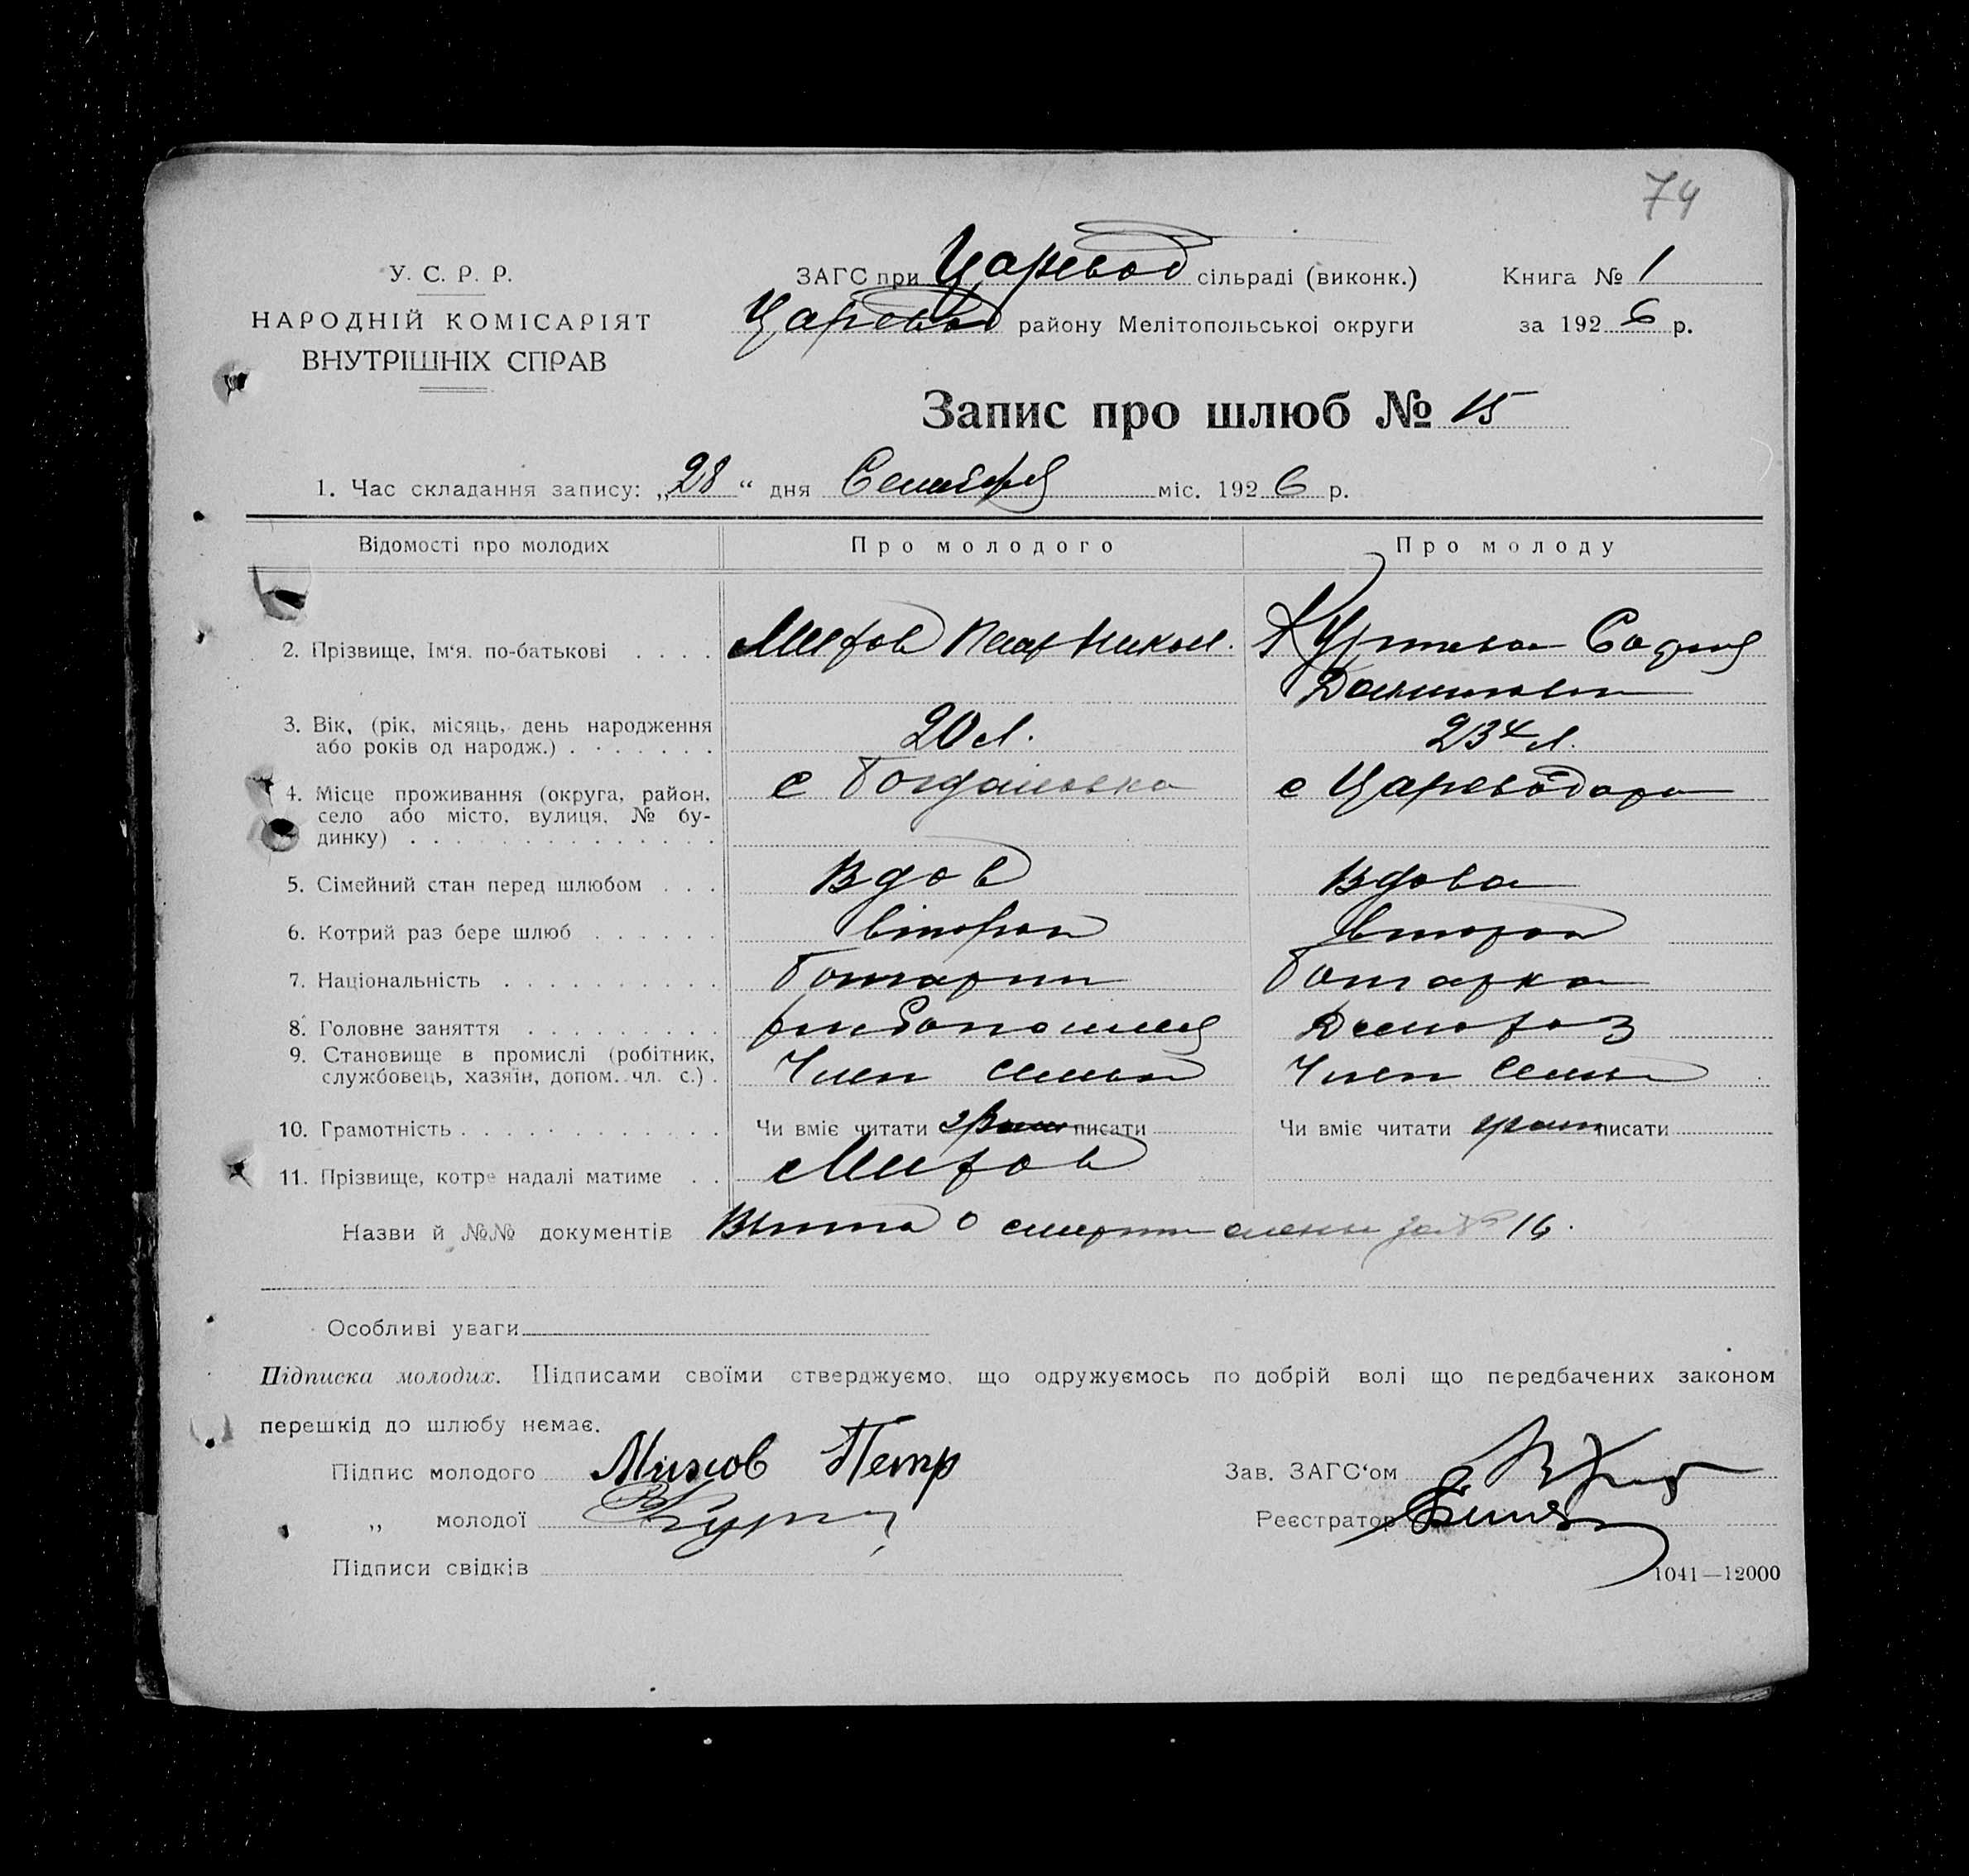 74
У. С. Р. Р.
НАРОДНІЙ КОМІСАРІЯТ
ВНУТРІШНІХ СПРАВ
ЗАГС при Царевод сільраді (виконк.)
Царевод району Мелітопольської округи
Книга № 1
за 1926 р.
Запис про шлюб № 15
1. Час складання запису: „28“ дня Сентября міс. 1926 р.
Відомості про молодих Про молодого Про молоду
2. Прізвище, Ім‘я. по-батькові . . . . Петр Никол.
3. Вік, (рік, місяць, день народження
або років од народж.) . . . . . . . 20 л. 23 л.
4. Місце проживання (округа, район,
село або місто, вулиця, № бу-
динку) . . . . . . . . . . . . . . с Богдановка с Цареводаро
5. Сімейний стан перед шлюбом . . . Вдов Вдова
6. Котрий раз бере шлюб . . . . . . второй второй
7. Національність . . . . . . . . . . Болгарин Болгарка
8. Головне заняття . . . . . . . . .
9. Становище в промислі (робітник,
службовець, хазяїн, допом. чл. с.) . Член семьи Член семьи
10. Грамотність . . . . . . . . . . . . Чи вміє читати грам писати Чи вміє читати грам писати
11. Прізвище, котре надалі матиме . .
Назви й №№ документів о смерти за № 16.
Особливі уваги
Підписка молодих. Підписами своїми стверджуємо, що одружуємось по добрій волі що передбачених законом
перешкід до шлюбу немає.
Підпис молодого Петр
„ молодої
Підписи свідків
Зав. ЗАГС‘ом
Реєстратор
1041—12000